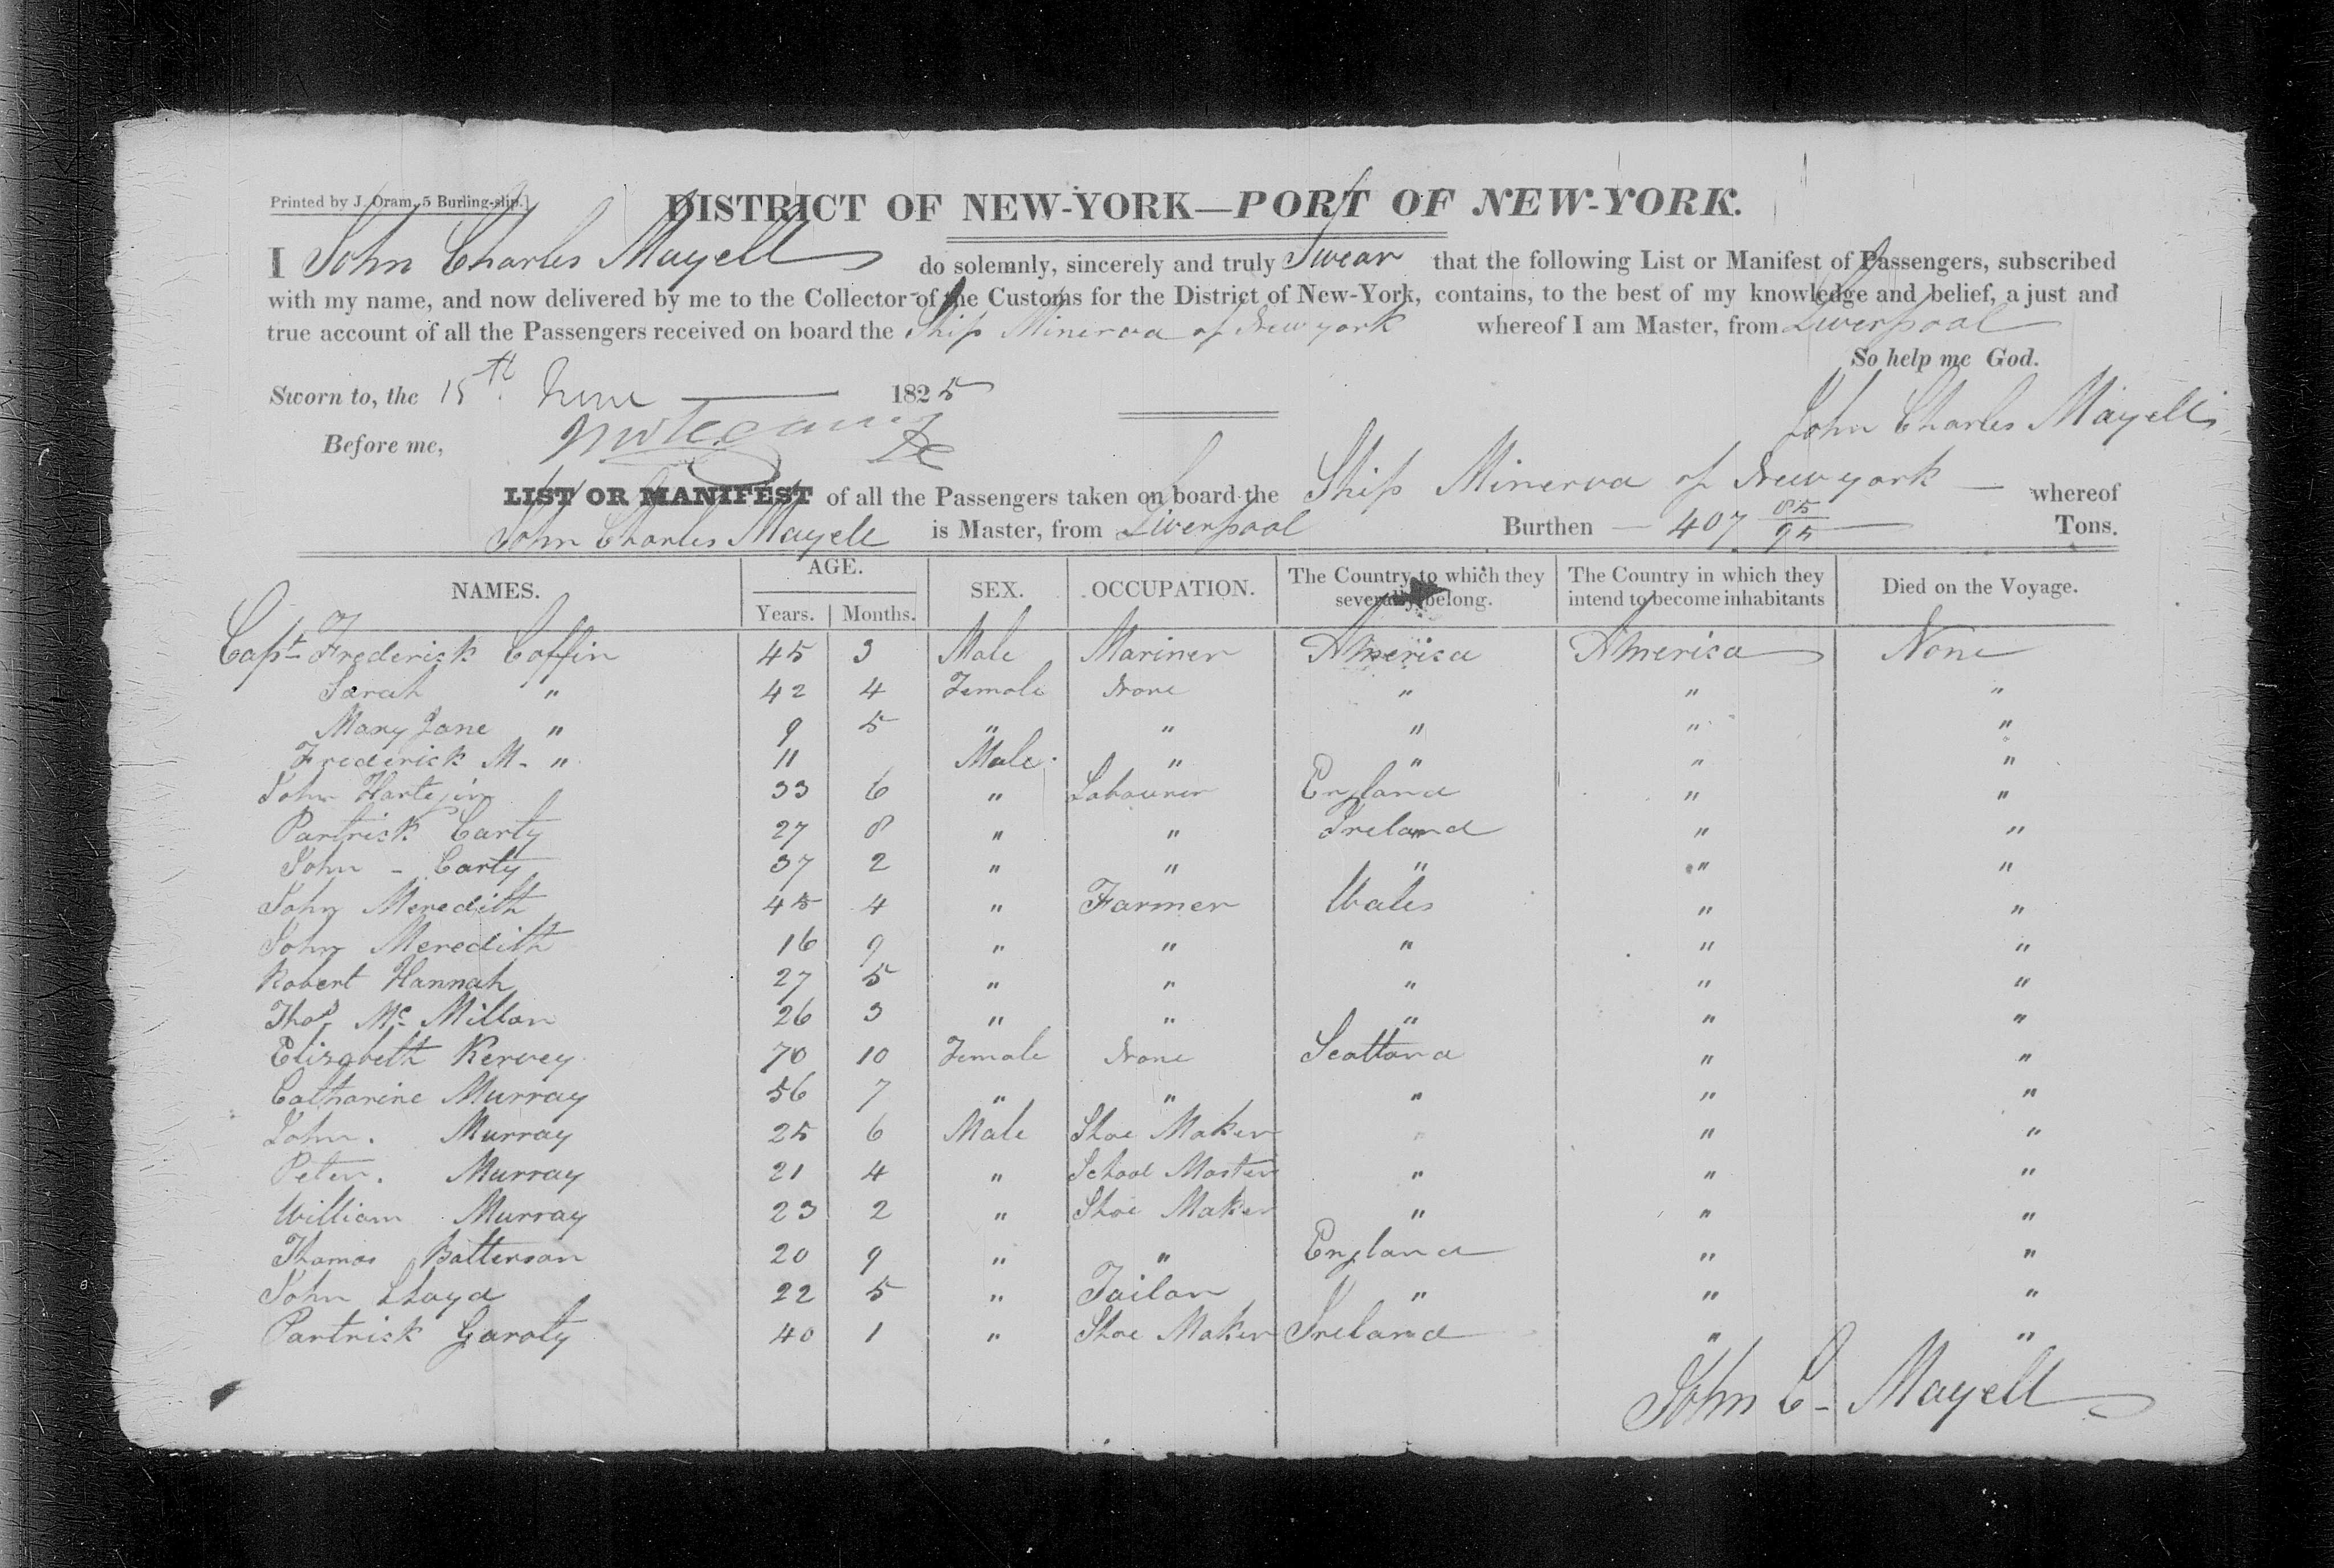 Printed by J. Oram, 5 Burling-slip.]
DISTRICT OF NEW-YORK—PORT OF NEW-YORK.
I John Charles Mayell do solemnly, sincerely and truly Swear that the following List or Manifest of Passengers, subscribed
with my name, and now delivered by me to the Collector of the Customs for the District of New-York, contains, to the best of my knowledge and belief, a just and
true account of all the Passengers received on board the Ship Minerva of New york whereof I am Master, from Liverpool
So help me God.
Sworn to, the 15th June 1825
John Charles Mayell
Before me,
LIST OR MANIFEST of all the Passengers taken on board the Ship Minerva of New york — whereof
John Charles Mayell is Master, from Liverpool Burthen — 407 85/95 — Tons.
NAMES. AGE. Years. Months. SEX. OCCUPATION. The Country to which they severally belong. The Country in which they intend to become inhabitants Died on the Voyage.
Capt Frederick Coffin 45 3 Male Mariner America America None
Sarah " 42 4 Female None " " "
Mary Jane " 9 5 " " " " "
Frederick M. " 11 Male " " " "
John 33 6 " Labourer England " "
Partrick Carty 27 8 " " Ireland " "
John - Carty 37 2 " " " " "
John Meredith 45 4 " Farmer Wales " "
John Meredith 16 9 " " " " "
Robert Hannah 27 5 " " " " "
Thos Mc Millan 26 3 " " " " "
Elizabeth Kervey 70 10 Female None Scotland " "
Catharine Murray 56 7 " " " " "
John. Murray 25 6 Male Shoe Maker " " "
Peter. Murray 21 4 " School Master " " "
William Murray 23 2 " Shoe Maker " " "
Thomas Batterson 20 9 " " England " "
John Lloyd 22 5 " Tailor " " "
Partrick Garoty 40 1 " Shoe Maker Ireland " "
John C- Mayell